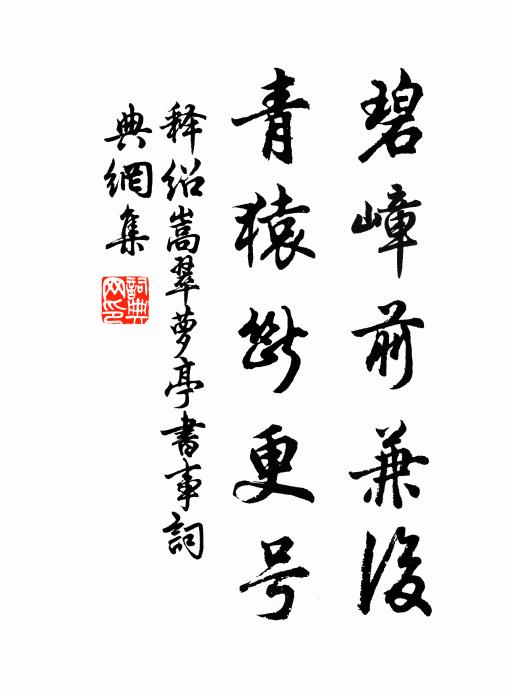 碧嶂前兼後
青猿斷更号
释绍嵩翠萝亭書事詞
典網集
詞典網印